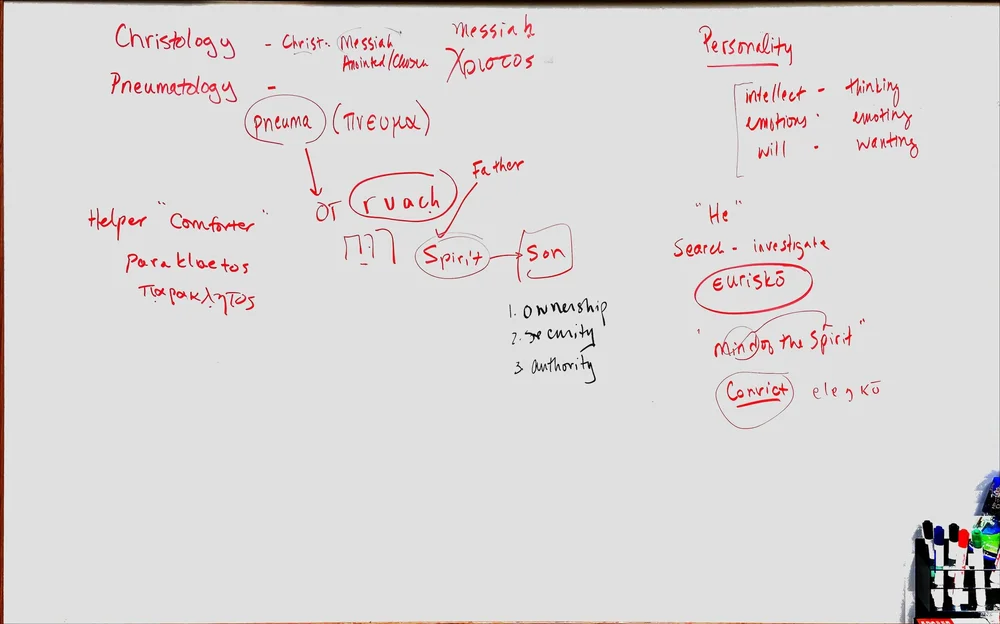 Christology - Christ - Messiah
Anointed/Chosen
Messiah
Χριστος
Pneumatology -
pneuma (πνευμα)
OT ruach
רוח
Father
Spirit → Son
1. ownership
2. security
3. authority
Helper "Comforter"
paraklaetos
παρακλητος
Personality
intellect - thinking
emotions - emoting
will - wanting
"He"
Search - investigate
euriskō
"Mind of the Spirit"
Convict